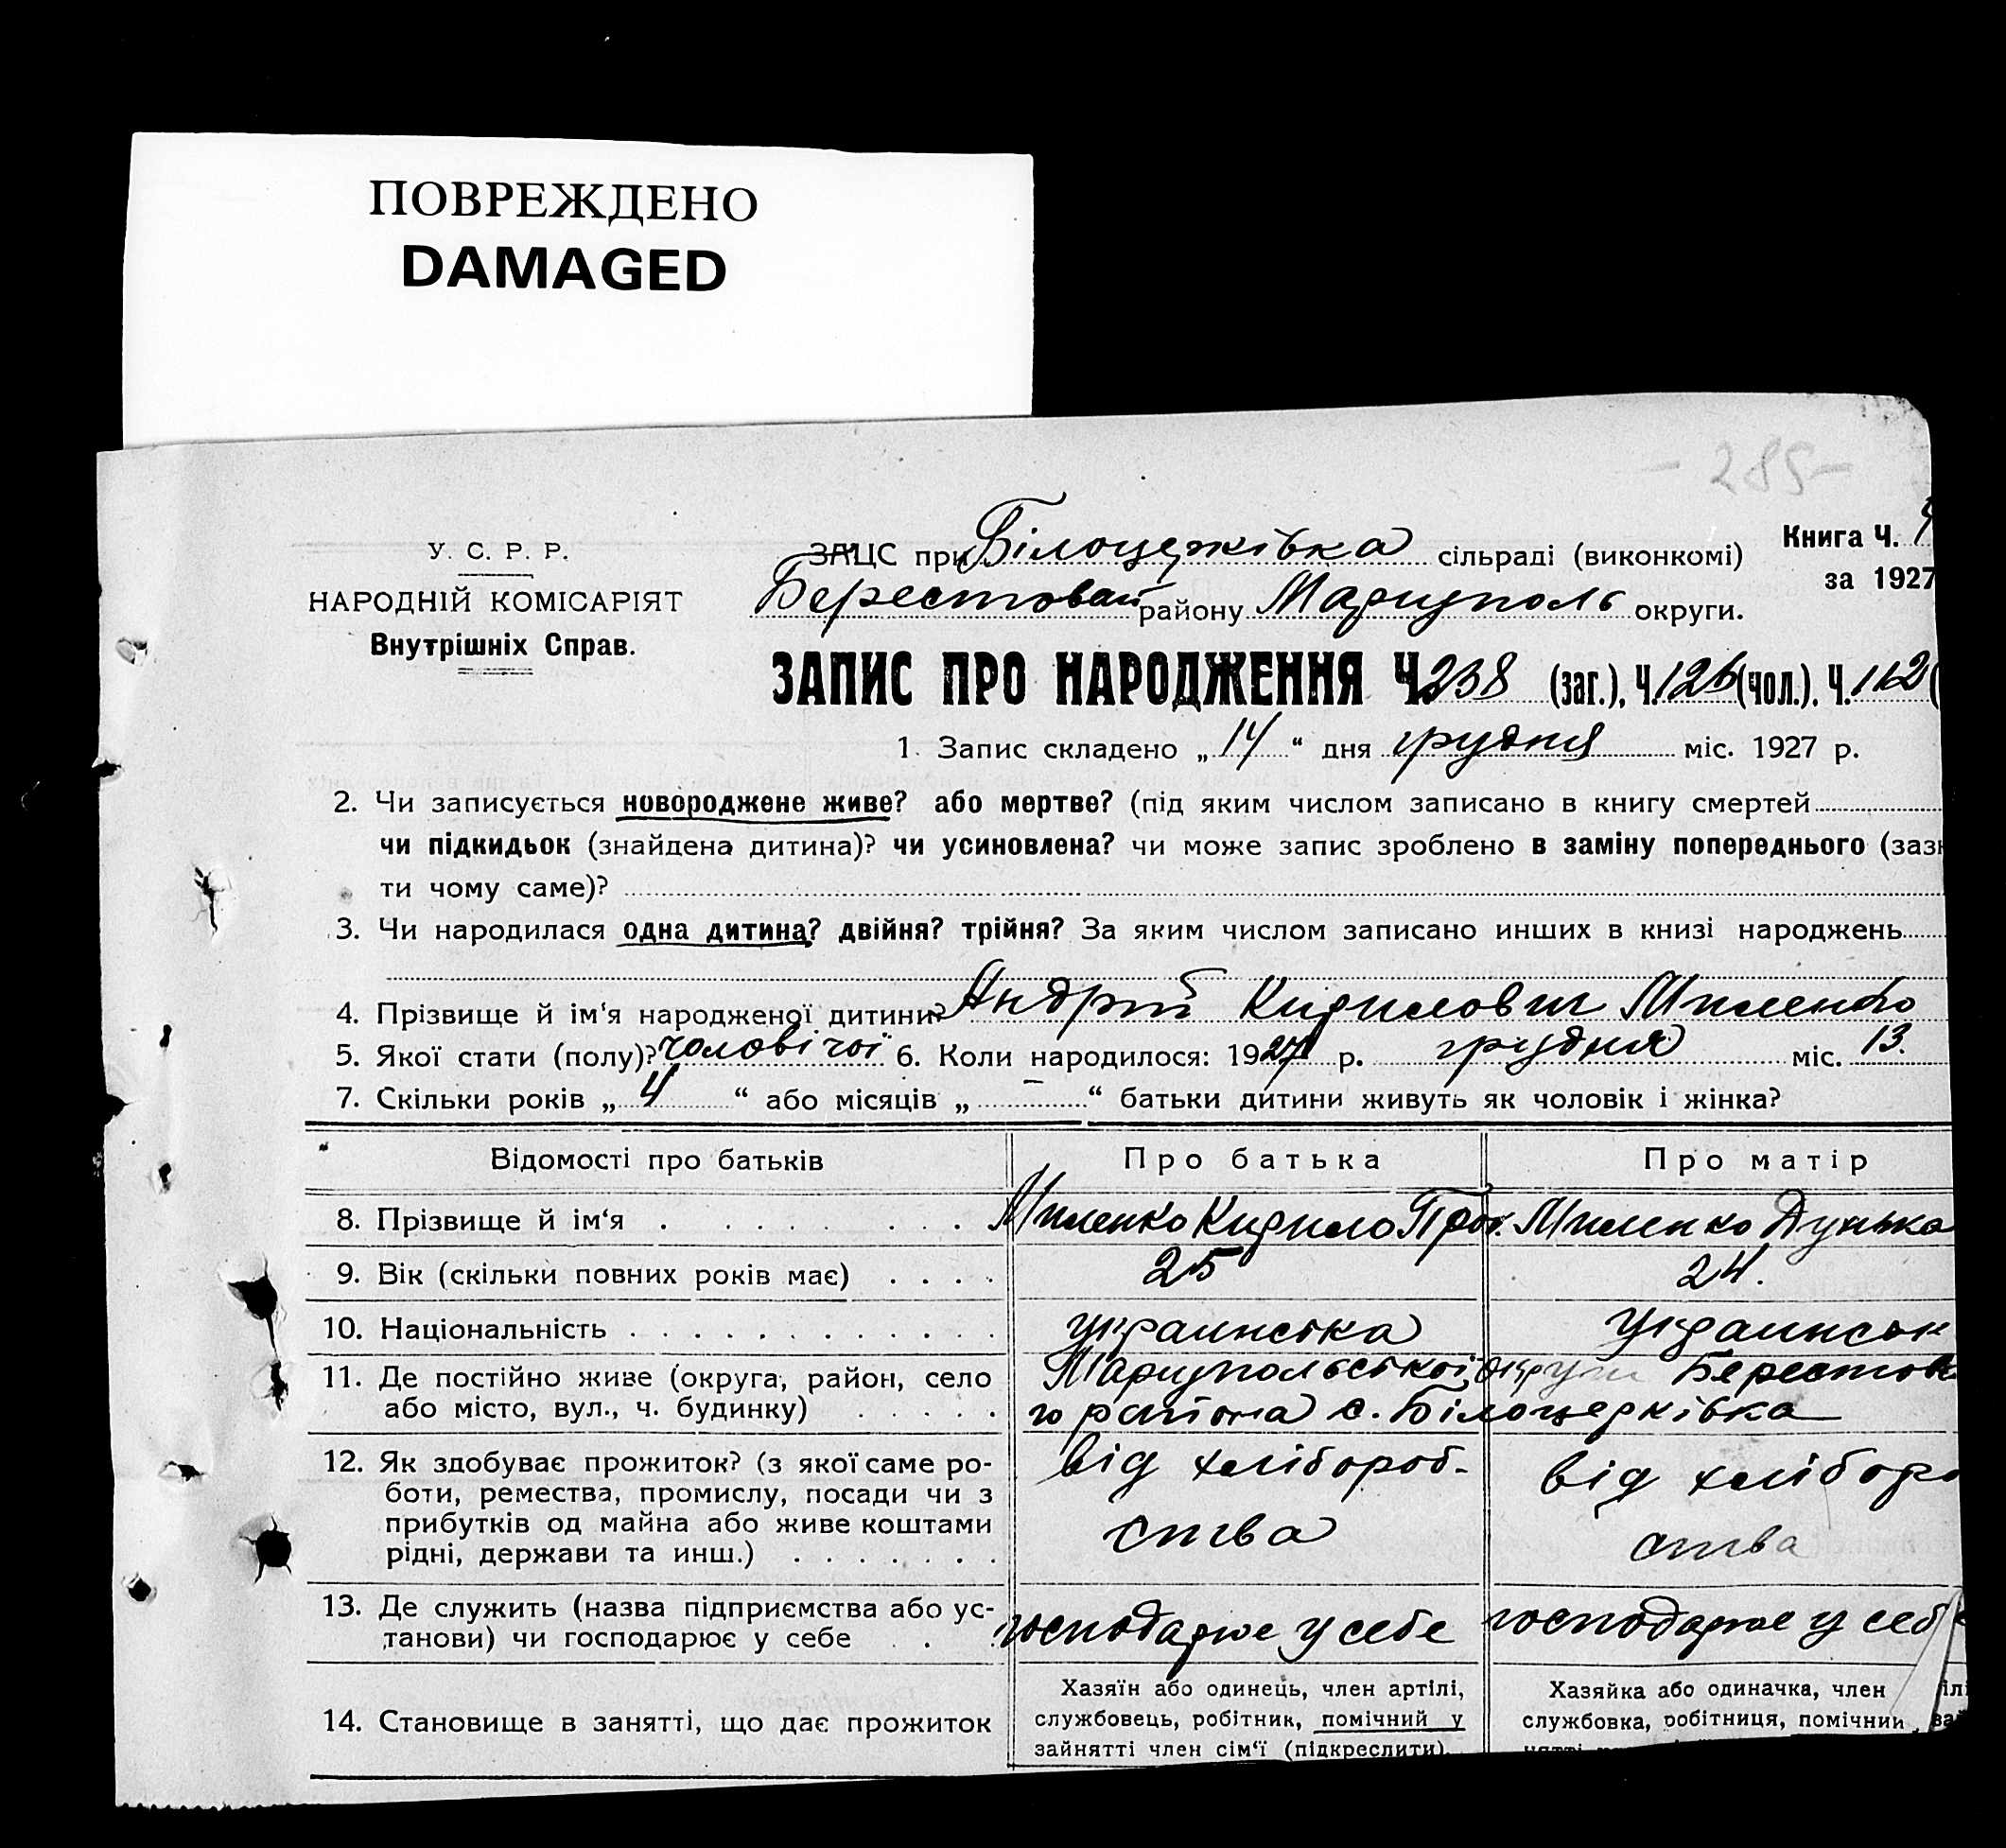 ПОВРЕЖДЕНО
DAMAGED
- 285 -
У. С. Р. Р.
НАРОДНІЙ КОМІСАРІЯТ
Внутрішніх Справ.
ЗАЦС при Білоцерківка сільраді (виконкомі)
Берестовай району Мариуполь округи.
Книга Ч.
за 1927
ЗАПИС ПРО НАРОДЖЕННЯ Ч. 238 (заг.), Ч. 126 (чол.). Ч. 112 (
1. Запис складено „ 14 “ дня грудня міс. 1927 р.
2. Чи записується новороджене живе? або мертве? (під яким числом записано в книгу смертей
чи підкидьок (знайдена дитина)? чи усиновлена? чи може запис зроблено в заміну попереднього (заз
ти чому саме)?
3. Чи народилася одна дитина? двійня? трійня? За яким числом записано инших в книзі народжень
4. Прізвище й ім‘я народженої дитини? Андрій Кирилович Миленко
5. Якої стати (полу)? чоловічої 6. Коли народилося: 1927 р. грудня міс. 13.
7. Скільки років „ 4 “ або місяців „ — “ батьки дитини живуть як чоловік і жінка?
Відомості про батьків Про батька Про матір
8. Прізвище й ім‘я . Миленко Кирило Прок. Миленко Дунька
9. Вік (скільки повних років має) 25 24.
10. Національність украинська украинськ
11. Де постійно живе (округа, район, село Мариупольської округи Берестов
або місто, вул., ч. будинку) го района с. Білоцерківка
12. Як здобуває прожиток? (з якої саме ро- від хлібороб- від хліборо
боти, ремества, промислу, посади чи з
прибутків од майна або живе коштами ства ства
рідні, держави та инш.)
13. Де служить (назва підприємства або ус- господарює у себе господарює у себе
танови) чи господарює у себе
14. Становище в занятті, що дає прожиток
Хазяїн або одинець, член артілі,
службовець, робітник, помічний у
зайнятті член сім‘ї (підкреслити).
Хазяйка або одиначка, член ілі
службовка, робітниця, помічний